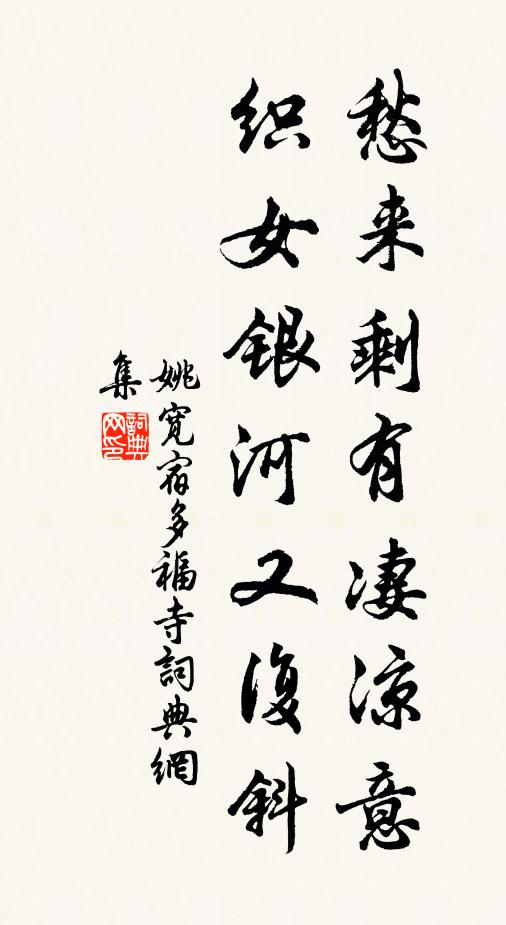 愁来剩有凄凉意
织女银河又复斜
姚宽宿多福寺詞典網
集
詞典
网印